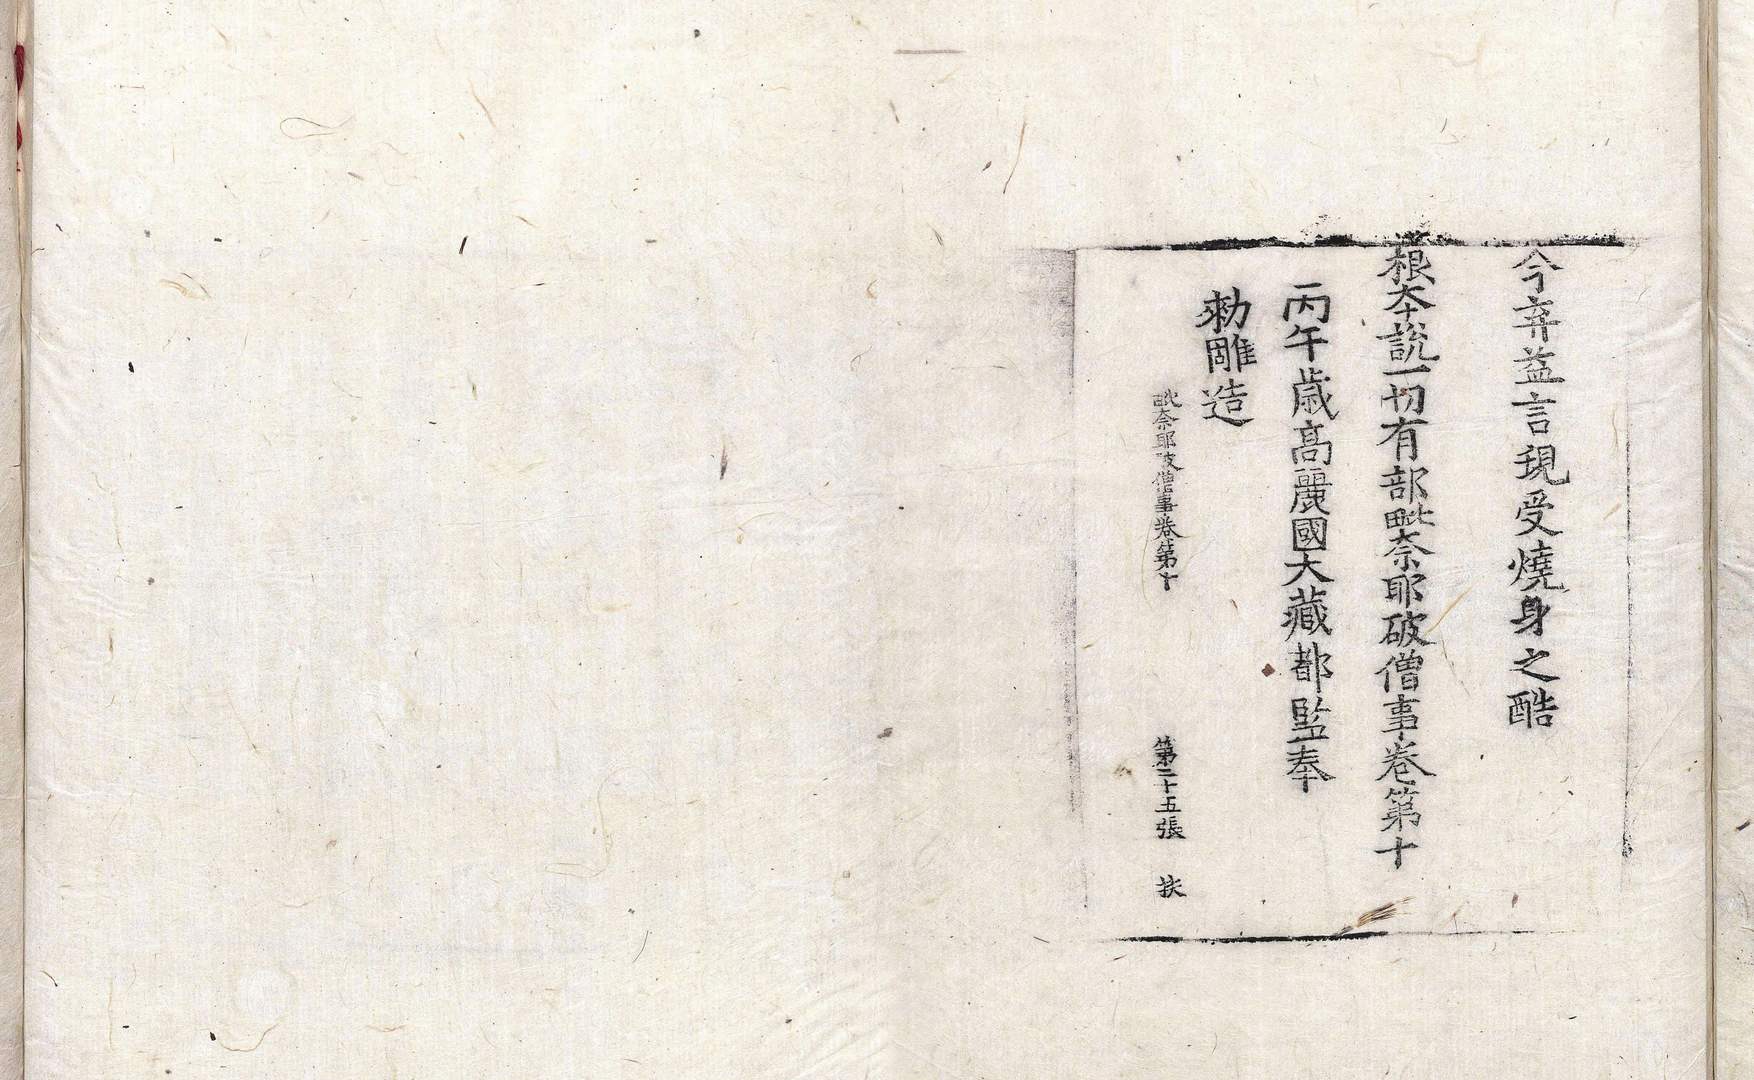 今弃益言現受燒身之酷
根本說一切有部毗奈耶破僧事卷第十
丙午歲高麗國大藏都監奉
勅雕造
毗奈耶破僧事卷第十 第二十五張 扶